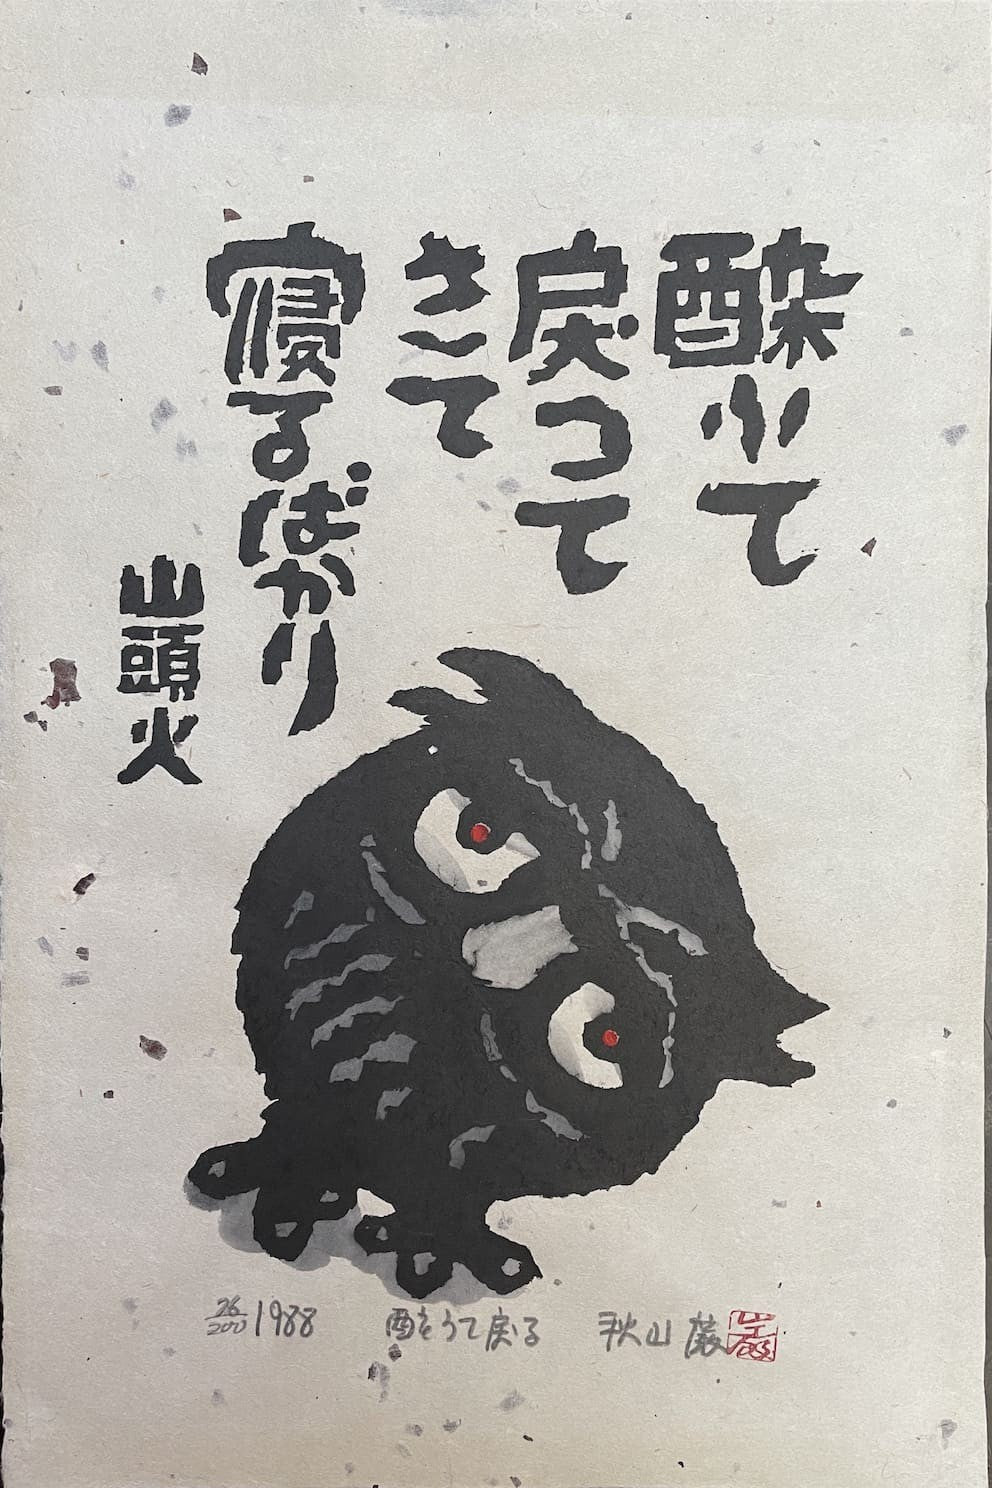 酔ふて
戻つて
きて
寝るばかり
山頭火
26/200 1988 酔うて戻る 秋山 巌